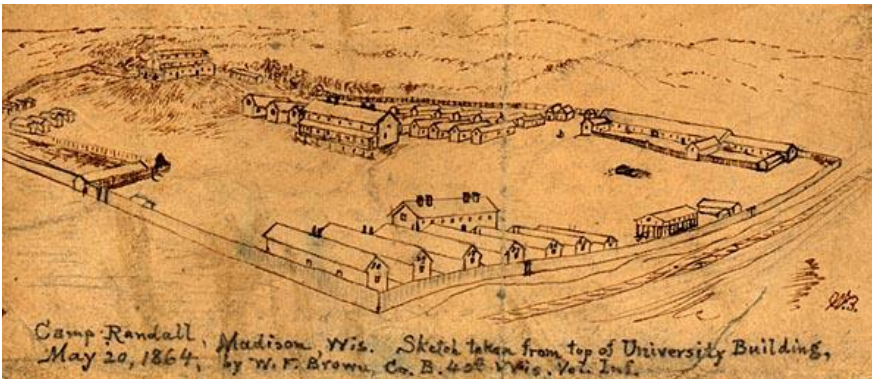 W.B.
Camp Randall, Madison Wis. Sketch taken from top of University Building,
May 20, 1864, by W. F. Brown, Co. B. 40th Wis. Vol. Inf.